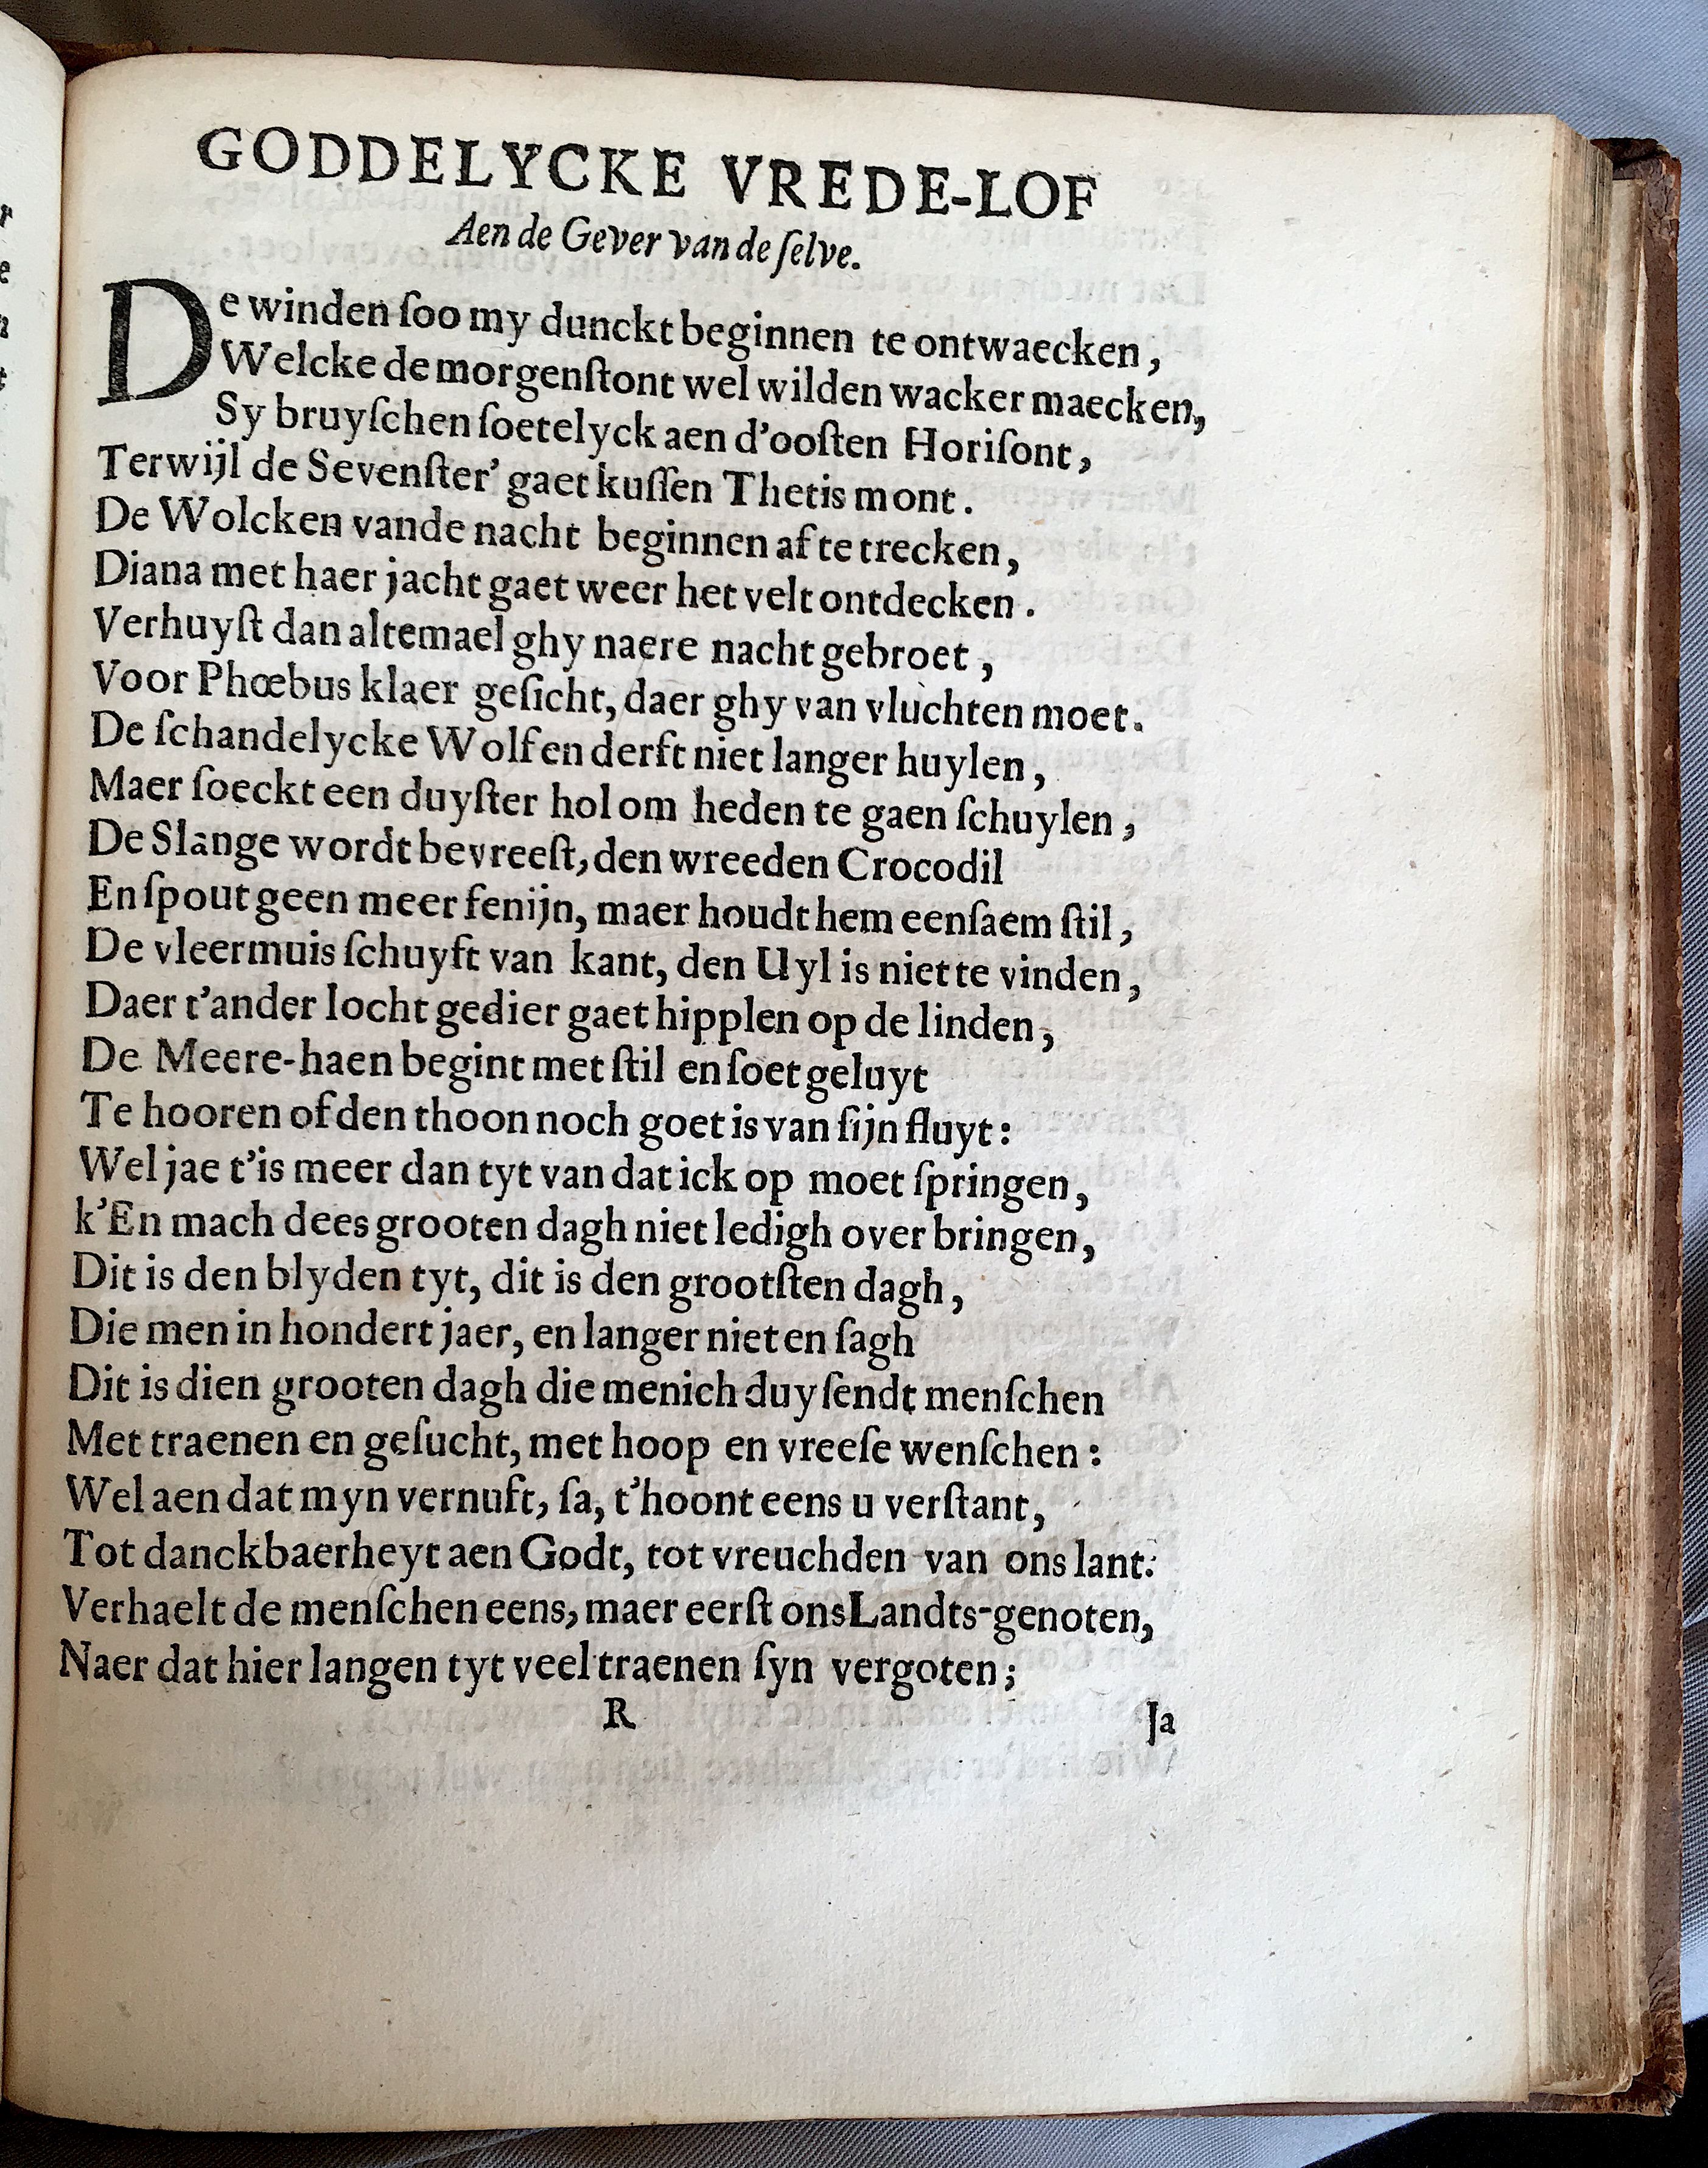 GODDELYCKE VREDE-LOF
Aen de Gever van de ſelve.
De winden ſoo my dunckt beginnen te ontwaecken,
Welcke de morgenſtont wel wilden wacker maecken,
Sy bruyſchen ſoetelyck aen d'ooſten Horiſont,
Terwijl de Sevenſter' gaet kuſſen Thetis mont.
De Wolcken vande nacht beginnen af te trecken,
Diana met haer jacht gaet weer het velt ontdecken.
Verhuyſt dan altemael ghy naere nacht gebroet,
Voor Phœbus klaer geſicht, daer ghy van vluchten moet.
De ſchandelycke Wolf en derft niet langer huylen,
Maer ſoeckt een duyſter hol om heden te gaen ſchuylen,
De Slange wordt bevreeſt, den wreeden Crocodil
En ſpout geen meer fenijn, maer houdt hem eenſaem ſtil,
De vleermuis ſchuyft van kant, den Uyl is niet te vinden,
Daer t'ander locht gedier gaet hipplen op de linden,
De Meere-haen begint met ſtil en ſoet geluyt
Te hooren of den thoon noch goet is van ſijn fluyt:
Wel jae t'is meer dan tyt van dat ick op moet ſpringen,
k'En mach dees grooten dagh niet ledigh over bringen,
Dit is den blyden tyt, dit is den grootſten dagh,
Die men in hondert jaer, en langer niet en ſagh
Dit is dien grooten dagh die menich duyſendt menſchen
Met traenen en geſucht, met hoop en vreeſe wenſchen:
Wel aen dat myn vernuft, ſa, t'hoont eens u verſtant,
Tot danckbaerheyt aen Godt, tot vreuchden van ons lant:
Verhaelt de menſchen eens, maer eerſt ons Landts-genoten,
Naer dat hier langen tyt veel traenen ſyn vergoten;
R
Ja